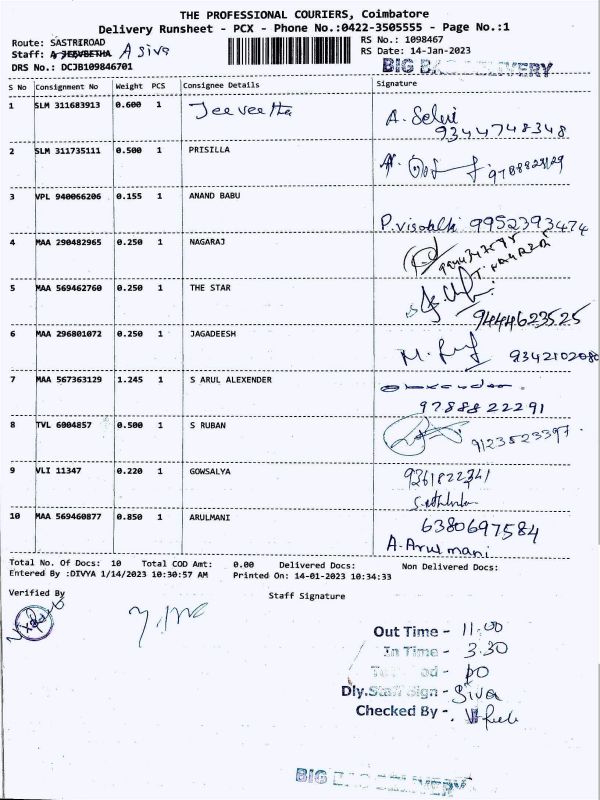 THE PROFESSIONAL COURIERS, Coimbatore
Delivery Runsheet - PCX - Phone No.:0422-3505555 - Page No.:1
Route: SASTRIROAD
RS No.: 1098467
Staff: A JEEVEETHA A Siva
RS Date: 14-Jan-2023
DRS No.: DCJB109846701
BIG BAG DELIVERY
S No Consignment No Weight PCS Consignee Details Signature
1 SLM 311683913 0.600 1 Jeeveetha A. Selvi
9344748348
2 SLM 311735111 0.500 1 PRISILLA
3 VPL 940066206 0.155 1 ANAND BABU
P.visalatchi 9952393474
4 MAA 290482965 0.250 1 NAGARAJ
5 MAA 569462760 0.250 1 THE STAR
9444623525
6 MAA 296801072 0.250 1 JAGADEESH
9342102080
7 MAA 567363129 1.245 1 S ARUL ALEXENDER
9788822291
8 TVL 6004857 0.500 1 S RUBAN
9123523397
9 VLI 11347 0.220 1 GOWSALYA
9361822341
10 MAA 569460877 0.850 1 ARULMANI
6380697584
A. Arulmani
Total No. Of Docs: 10 Total COD Amt: 0.00 Delivered Docs: Non Delivered Docs:
Entered By :DIVYA 1/14/2023 10:30:57 AM Printed On: 14-01-2023 10:34:33
Verified By
Staff Signature
Out Time - 11.00
In Time - 3.30
Dly.Staff Sign - Siva
Checked By -
BIG BAG DELIVERY